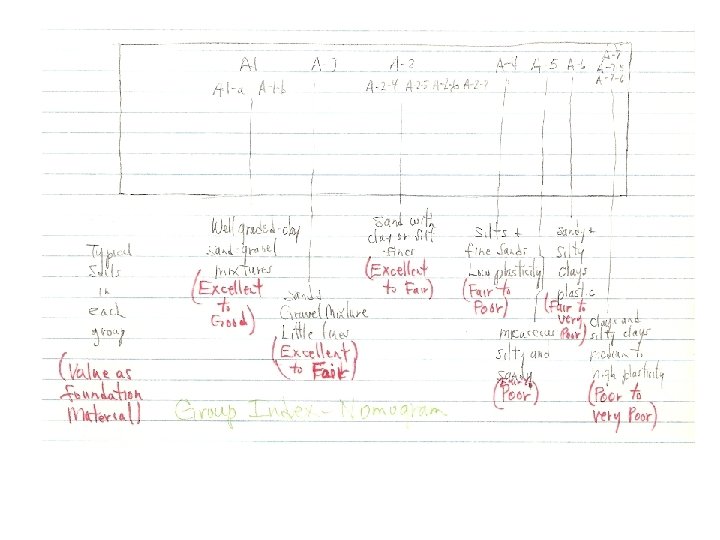 A1 A-3 A-2 A-4 A-5 A-6 A-7
A-7-5
A-7-6
A1-a A-1-b A-2-4 A-2-5 A-2-6 A-2-7
Typical
Soils
in
each
group
(Value as
foundation
Material)
Well graded-clay
sand-gravel
mixtures
(Excellent
to
Good)
Sands
Gravel Mixture
Little fines
(Excellent
to Fair)
Sand with
clay or silt
fines
(Excellent
to Fair)
Silts +
fine sands
Low plasticity
(Fair to
Poor)
micaceous
silty and
sandy
(Poor)
sandy +
silty
clays
plastic
(Fair to
very
Poor)
clays and
silty clays
medium to
high plasticity
(Poor to
very Poor)
Group Index-Nomogram